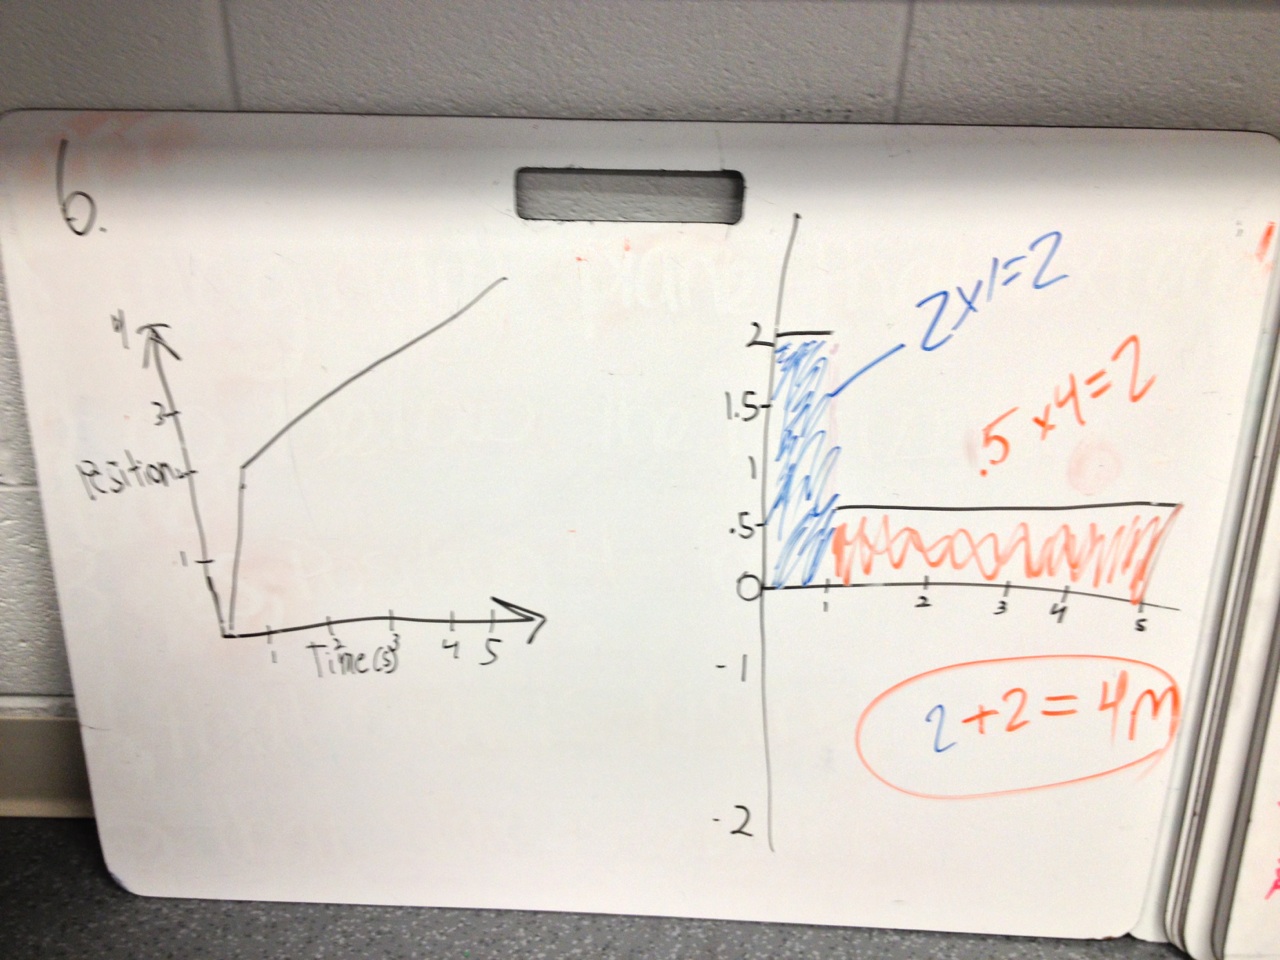 6.
4
3
Position
1
1 2 3 4 5
Time (s)
2x1=2
2
1.5
.5x4=2
1
.5
0
1 2 3 4 5
-1
2+2=4m
-2